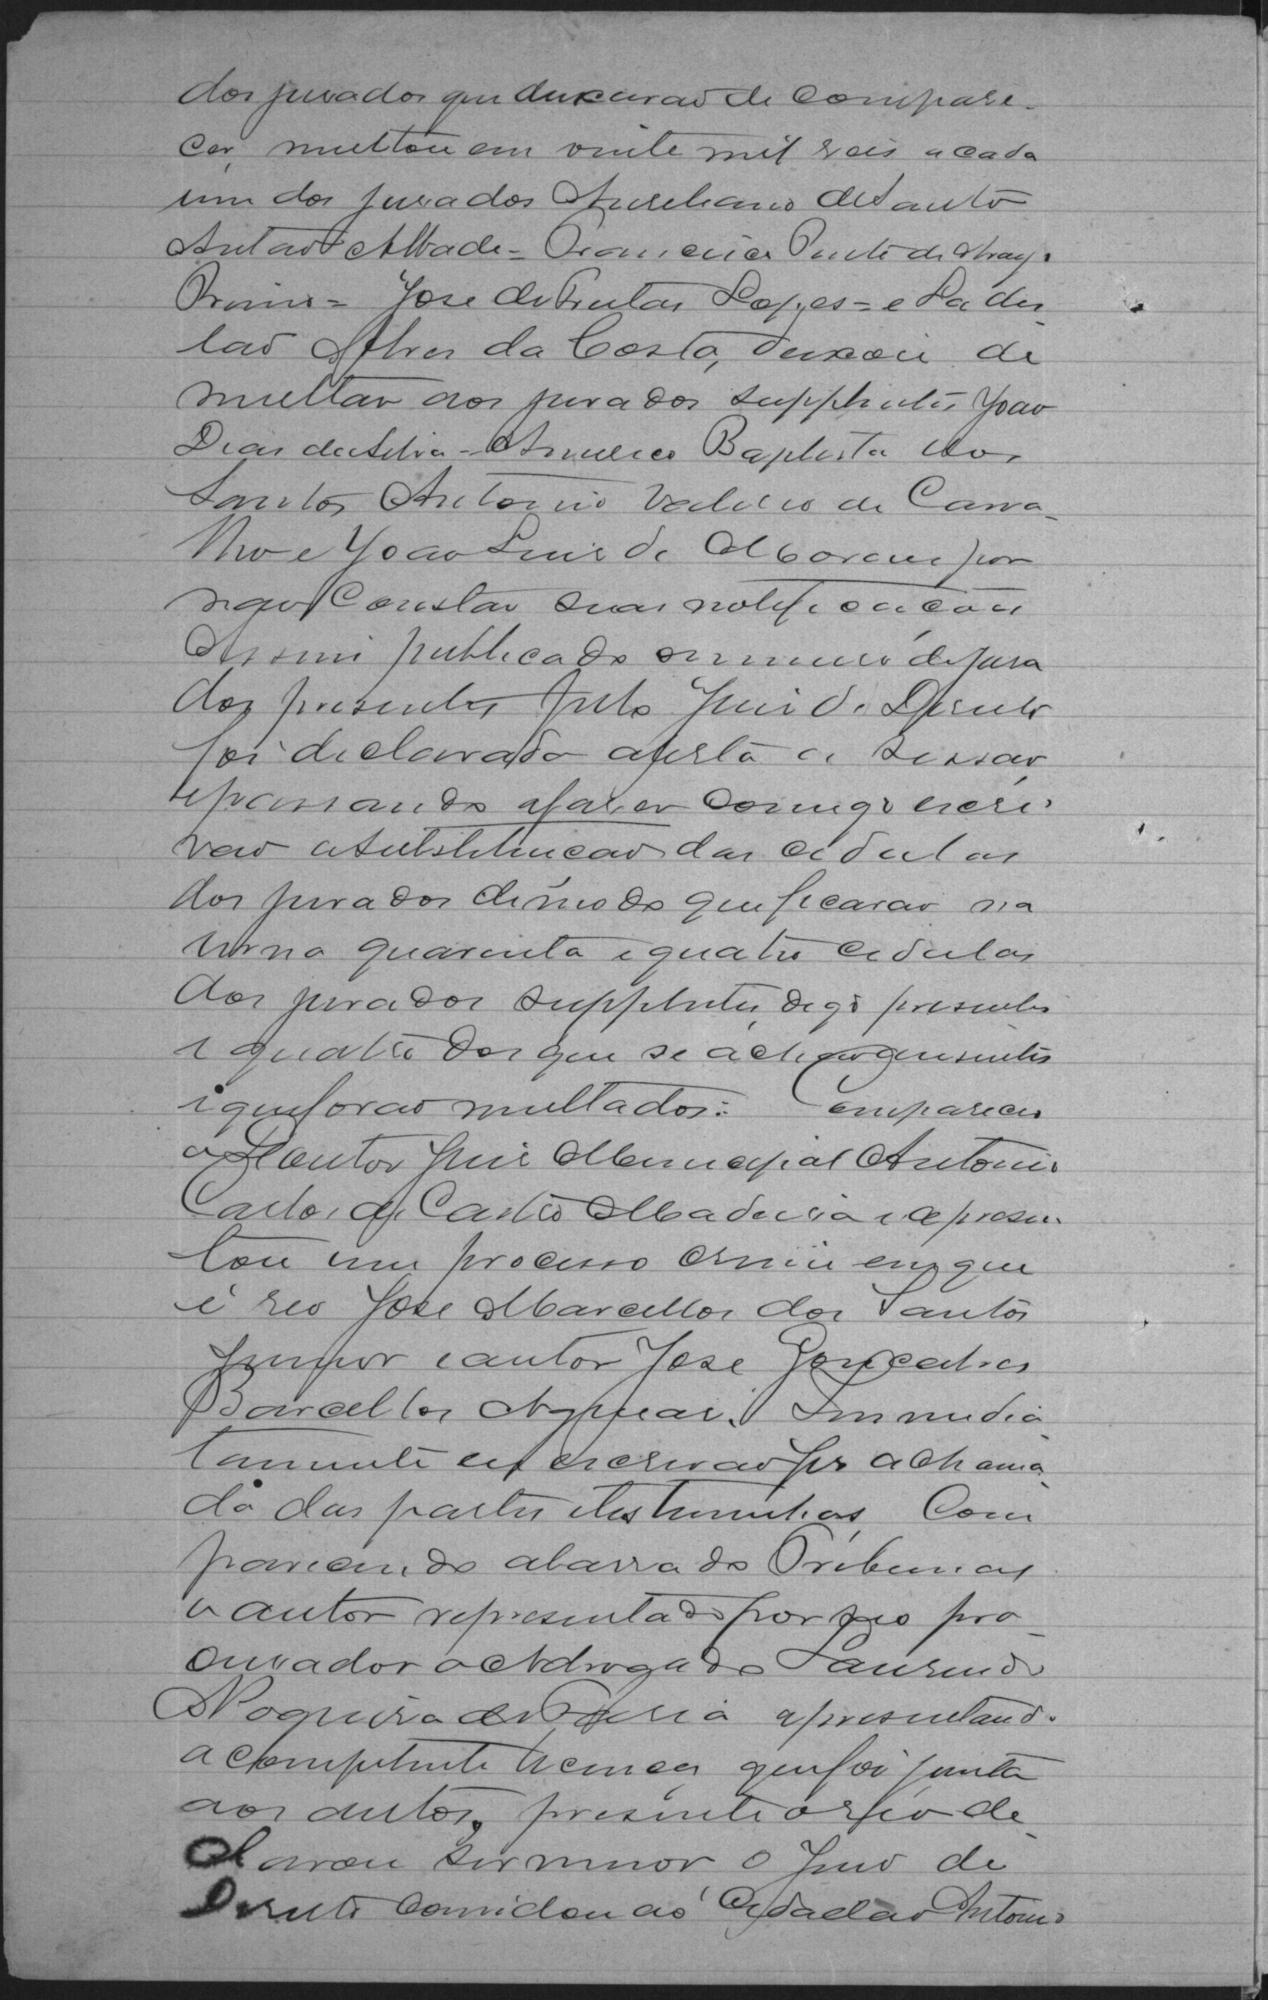 dos jurados que deixarão de compare-
cer, multou em vinte mil reis a cada
um dos jurados Aureliano de Santo
Antão Abbade = Francisco de
Primo = Jose de Freitas Lopes = e Lades
lao Alves da Costa, deixou de
multar aos jurados supplentes João
Dias da Silva - Americo Baptista dos
Santos Antonio Valerio de Carva-
lho e João Luis de Moraes por
não constar suas notificações
Assim publicado o numero de jura
dos presentes pelo Juiz de Direito
foi declarada aberta a sessão
e passando a fazer comigo escri
vão a substituição das cedulas
dos jurados de modo que ficarão na
urna quarenta e quatro cedulas
dos jurados supplentes, digo presentes
e quatro dos que se achão ausentes
e que forão multados: Compareceu
o Doutor Juiz Municipal Antonio
Carlos de Castro Madeira e apresen-
tou um processo crime em que
é reo Jose Marcellos dos Santos
Junior e autor Jose Gonçalves
Barcellos Immedia
tamente eu escrivão fiz a chama-
da das partes e testemunhas, Com
parecendo a barra do Tribunal
o autor representado por seo pro-
curador o Advogado Laurindo
Nogueira de Faria apresentando
a competente licença que foi junta
aos autos, presente o reo de-
clarou ser menor o Juiz de
Direito convidou ao Cidadão Antonio